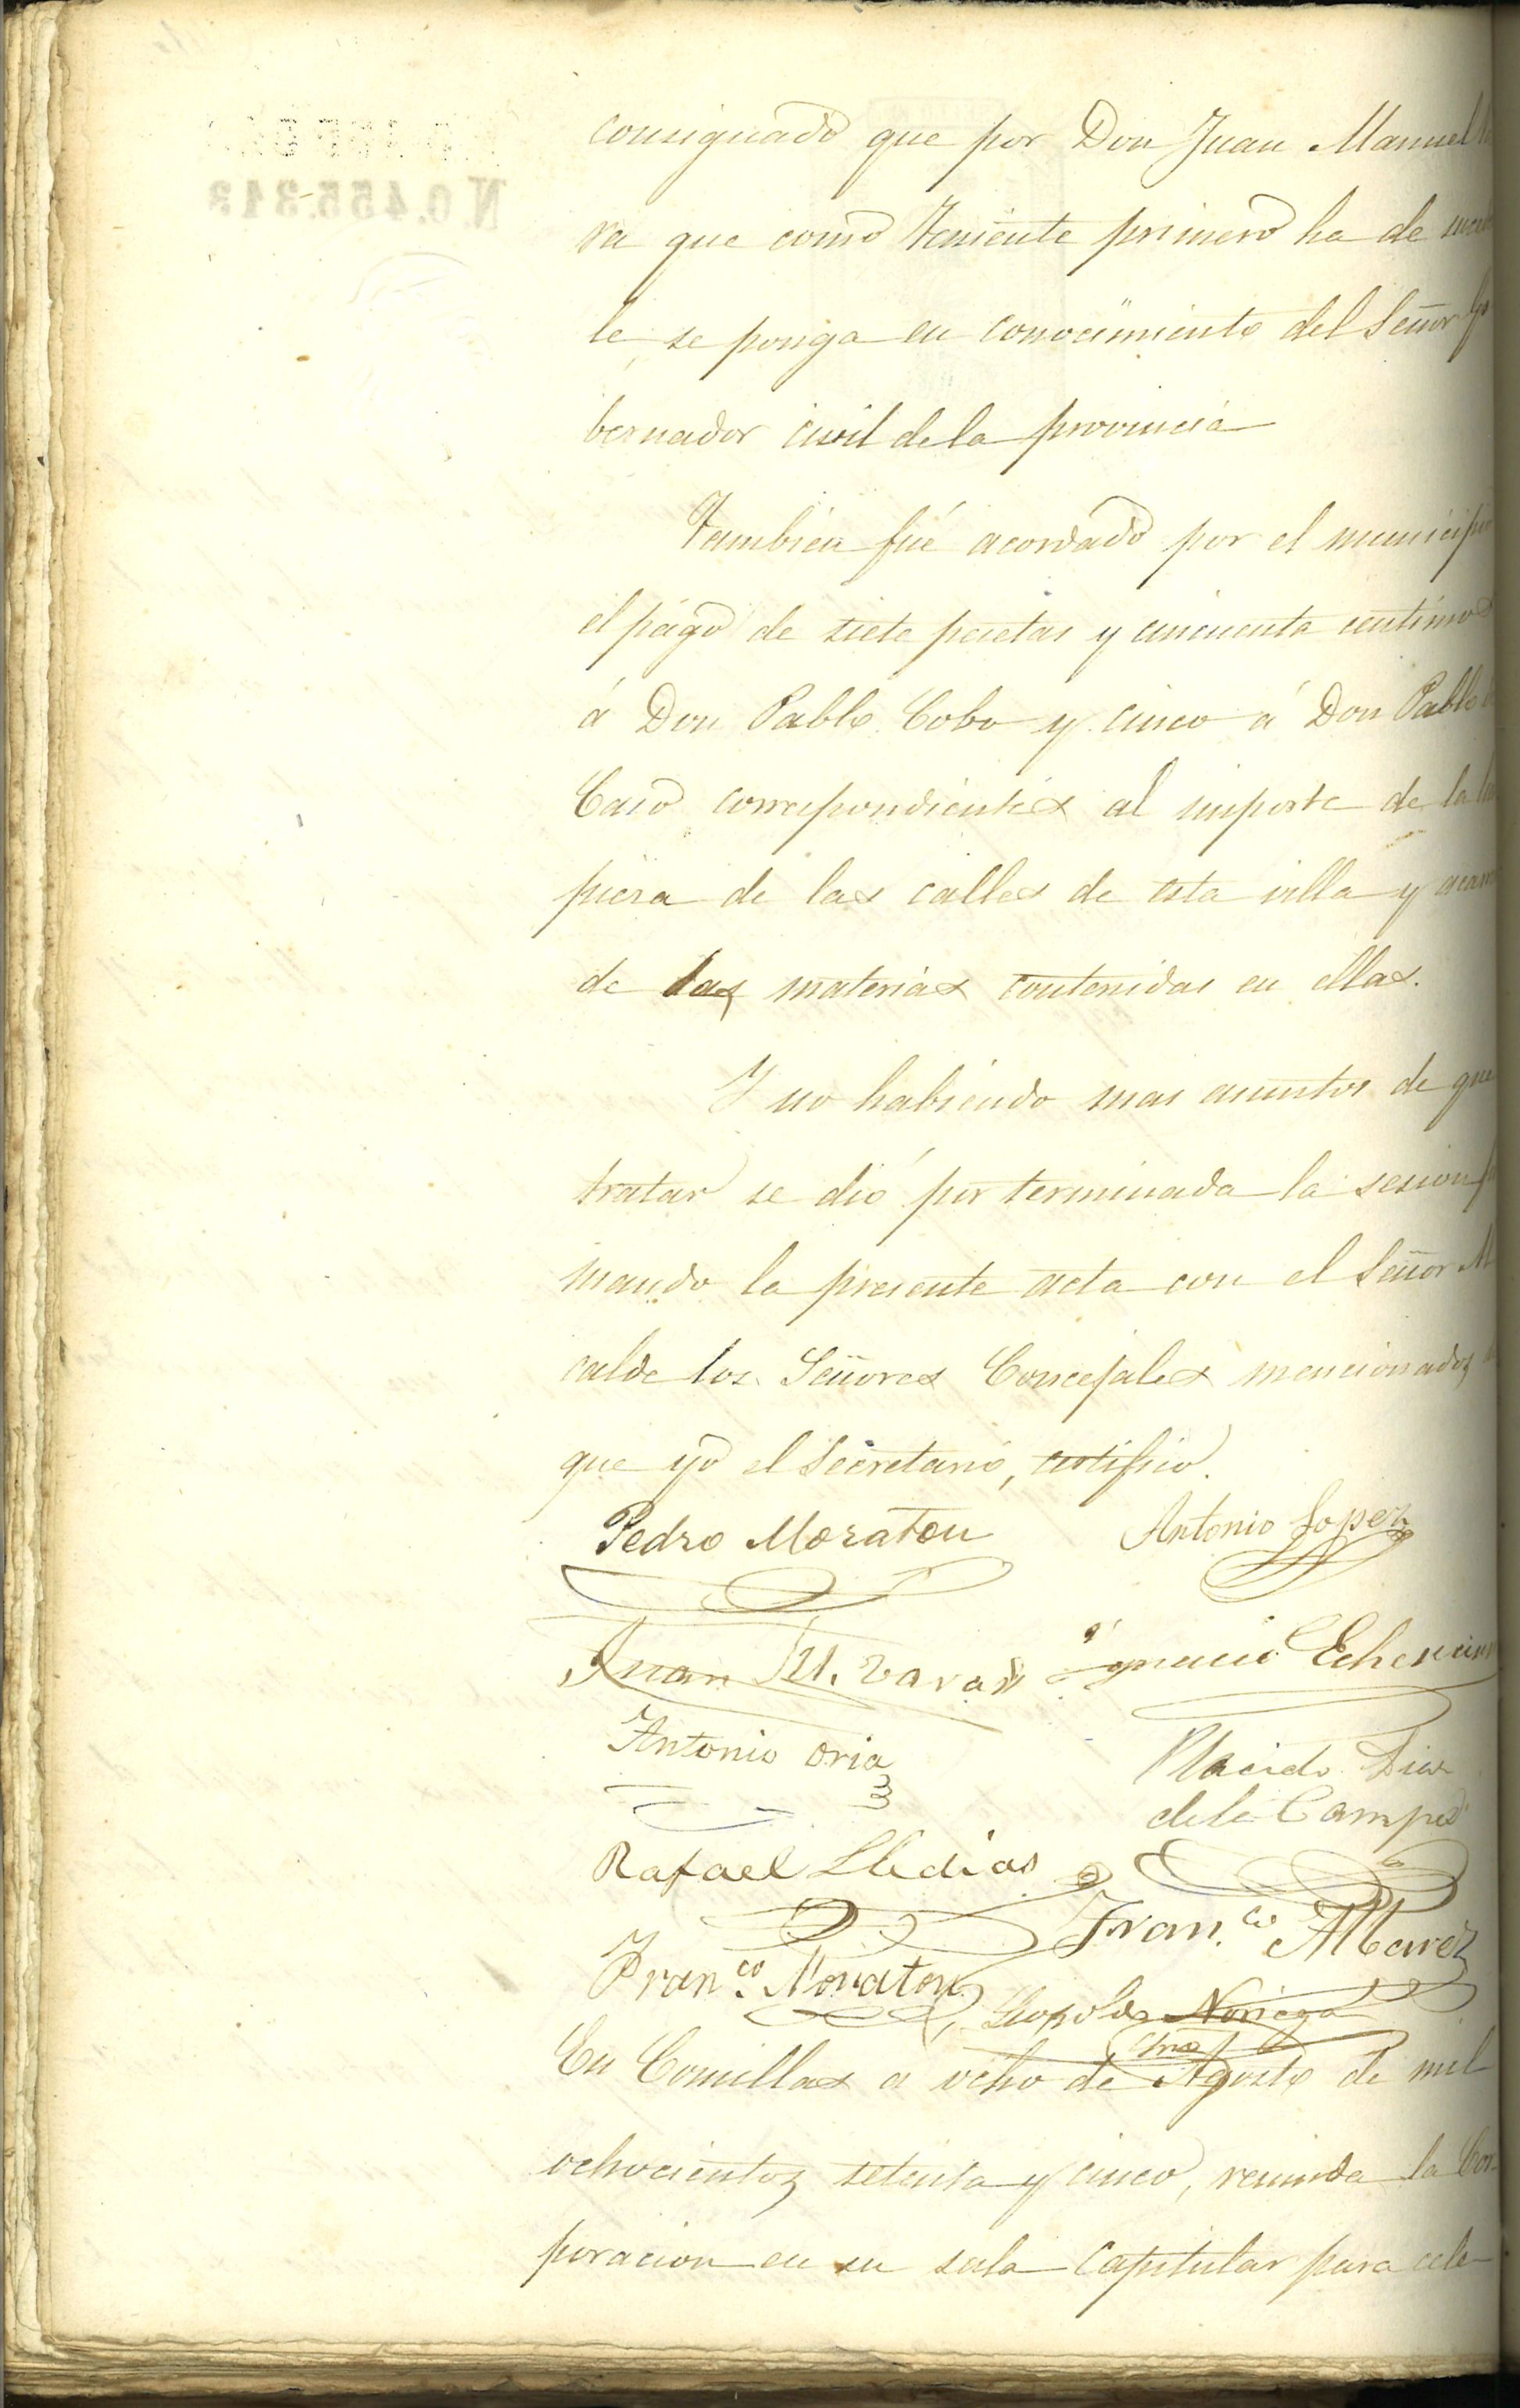 N 0.455.313
consignado que por Don Juan Manuel
ra que como teniente primero ha de
le, se ponga en conocimiento del Señor Go
bernador civil de la provincia
Tambien fué acordado por el municipio
el págo de siete pesetas y cincuenta centimos
á Don Pablo Cobo y cinco á Don Pablo
Caso correspondientes al importe de la
pieza de las calles de esta villa y acarr
de las materias contenidas en ellas.
Y no habiendo mas asuntos de que
tratar se dió por terminada la sesion fir
mando la presente acta con el Señor Al
calde los Señores Concejales mencionados
que yo el Secretario, certifico.
Pedro Moraton Antonio Lopez
Juan M. Vara Ignacio
Antonio Oria Placido Diaz
de la Campa
Rafael Lledias
Fran.co Albarez
Fran.co Moraton
Leopoldo Noriega
Srio
En Comillas a ocho de Agosto de mil
ochocientos setenta y cinco, reunida la Cor
poracion en su sala Capitular para cele